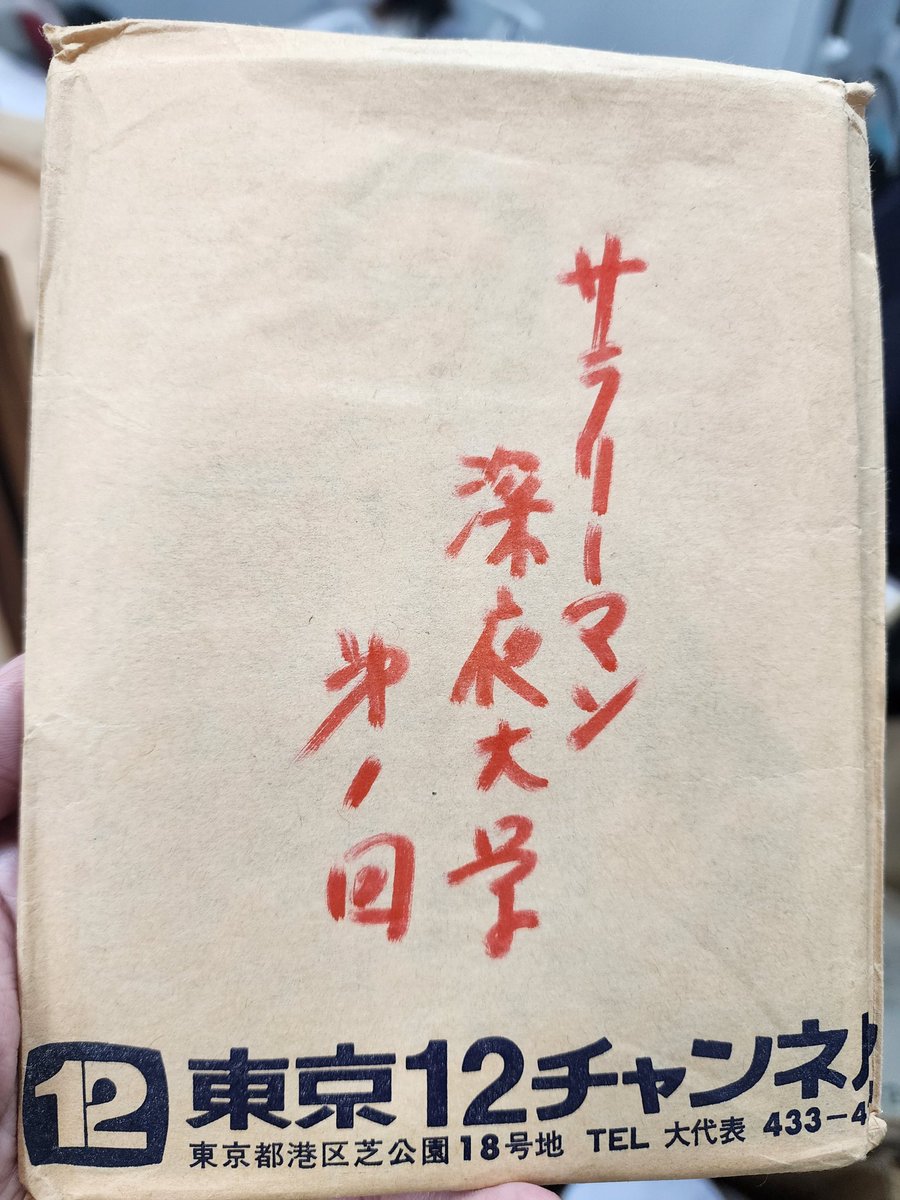 サラリーマン
深夜大学
第1回
12 東京12チャンネル
東京都港区芝公園18号地 TEL 大代表 433-4